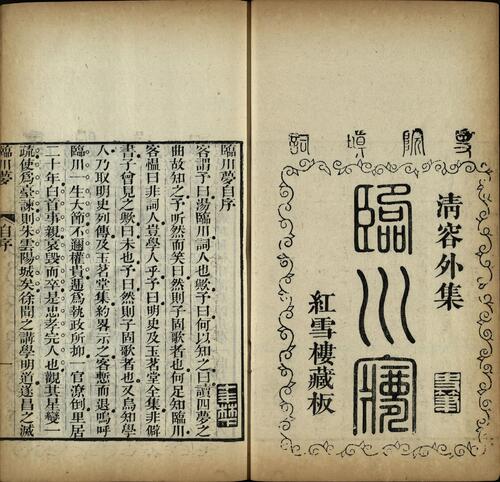 史院填詞
清容外集
臨川夢
紅雪樓藏板
臨川夢自序
客謂予曰湯臨川詞人也歟予曰何以知之曰讀四夢之
曲故知之予听然而笑曰然則子固歌者也何足知臨川
客慍曰非詞人豈學人乎予曰明史及玉茗堂全集非僻
書子曾見之歟曰未也予曰然則子固歌者也又烏知學
人乃取明史列傳及玉茗堂集約畧示之客慙而退嗚呼
臨川一生大節不邇權貴遞爲執政所抑一官潦倒里居
二十年白首事親哀毀而卒是忠孝完人也觀其星變一
疏使爲臺諫則朱雲陽城矣徐聞之講學明道遂昌之滅
臨川夢 自序 一